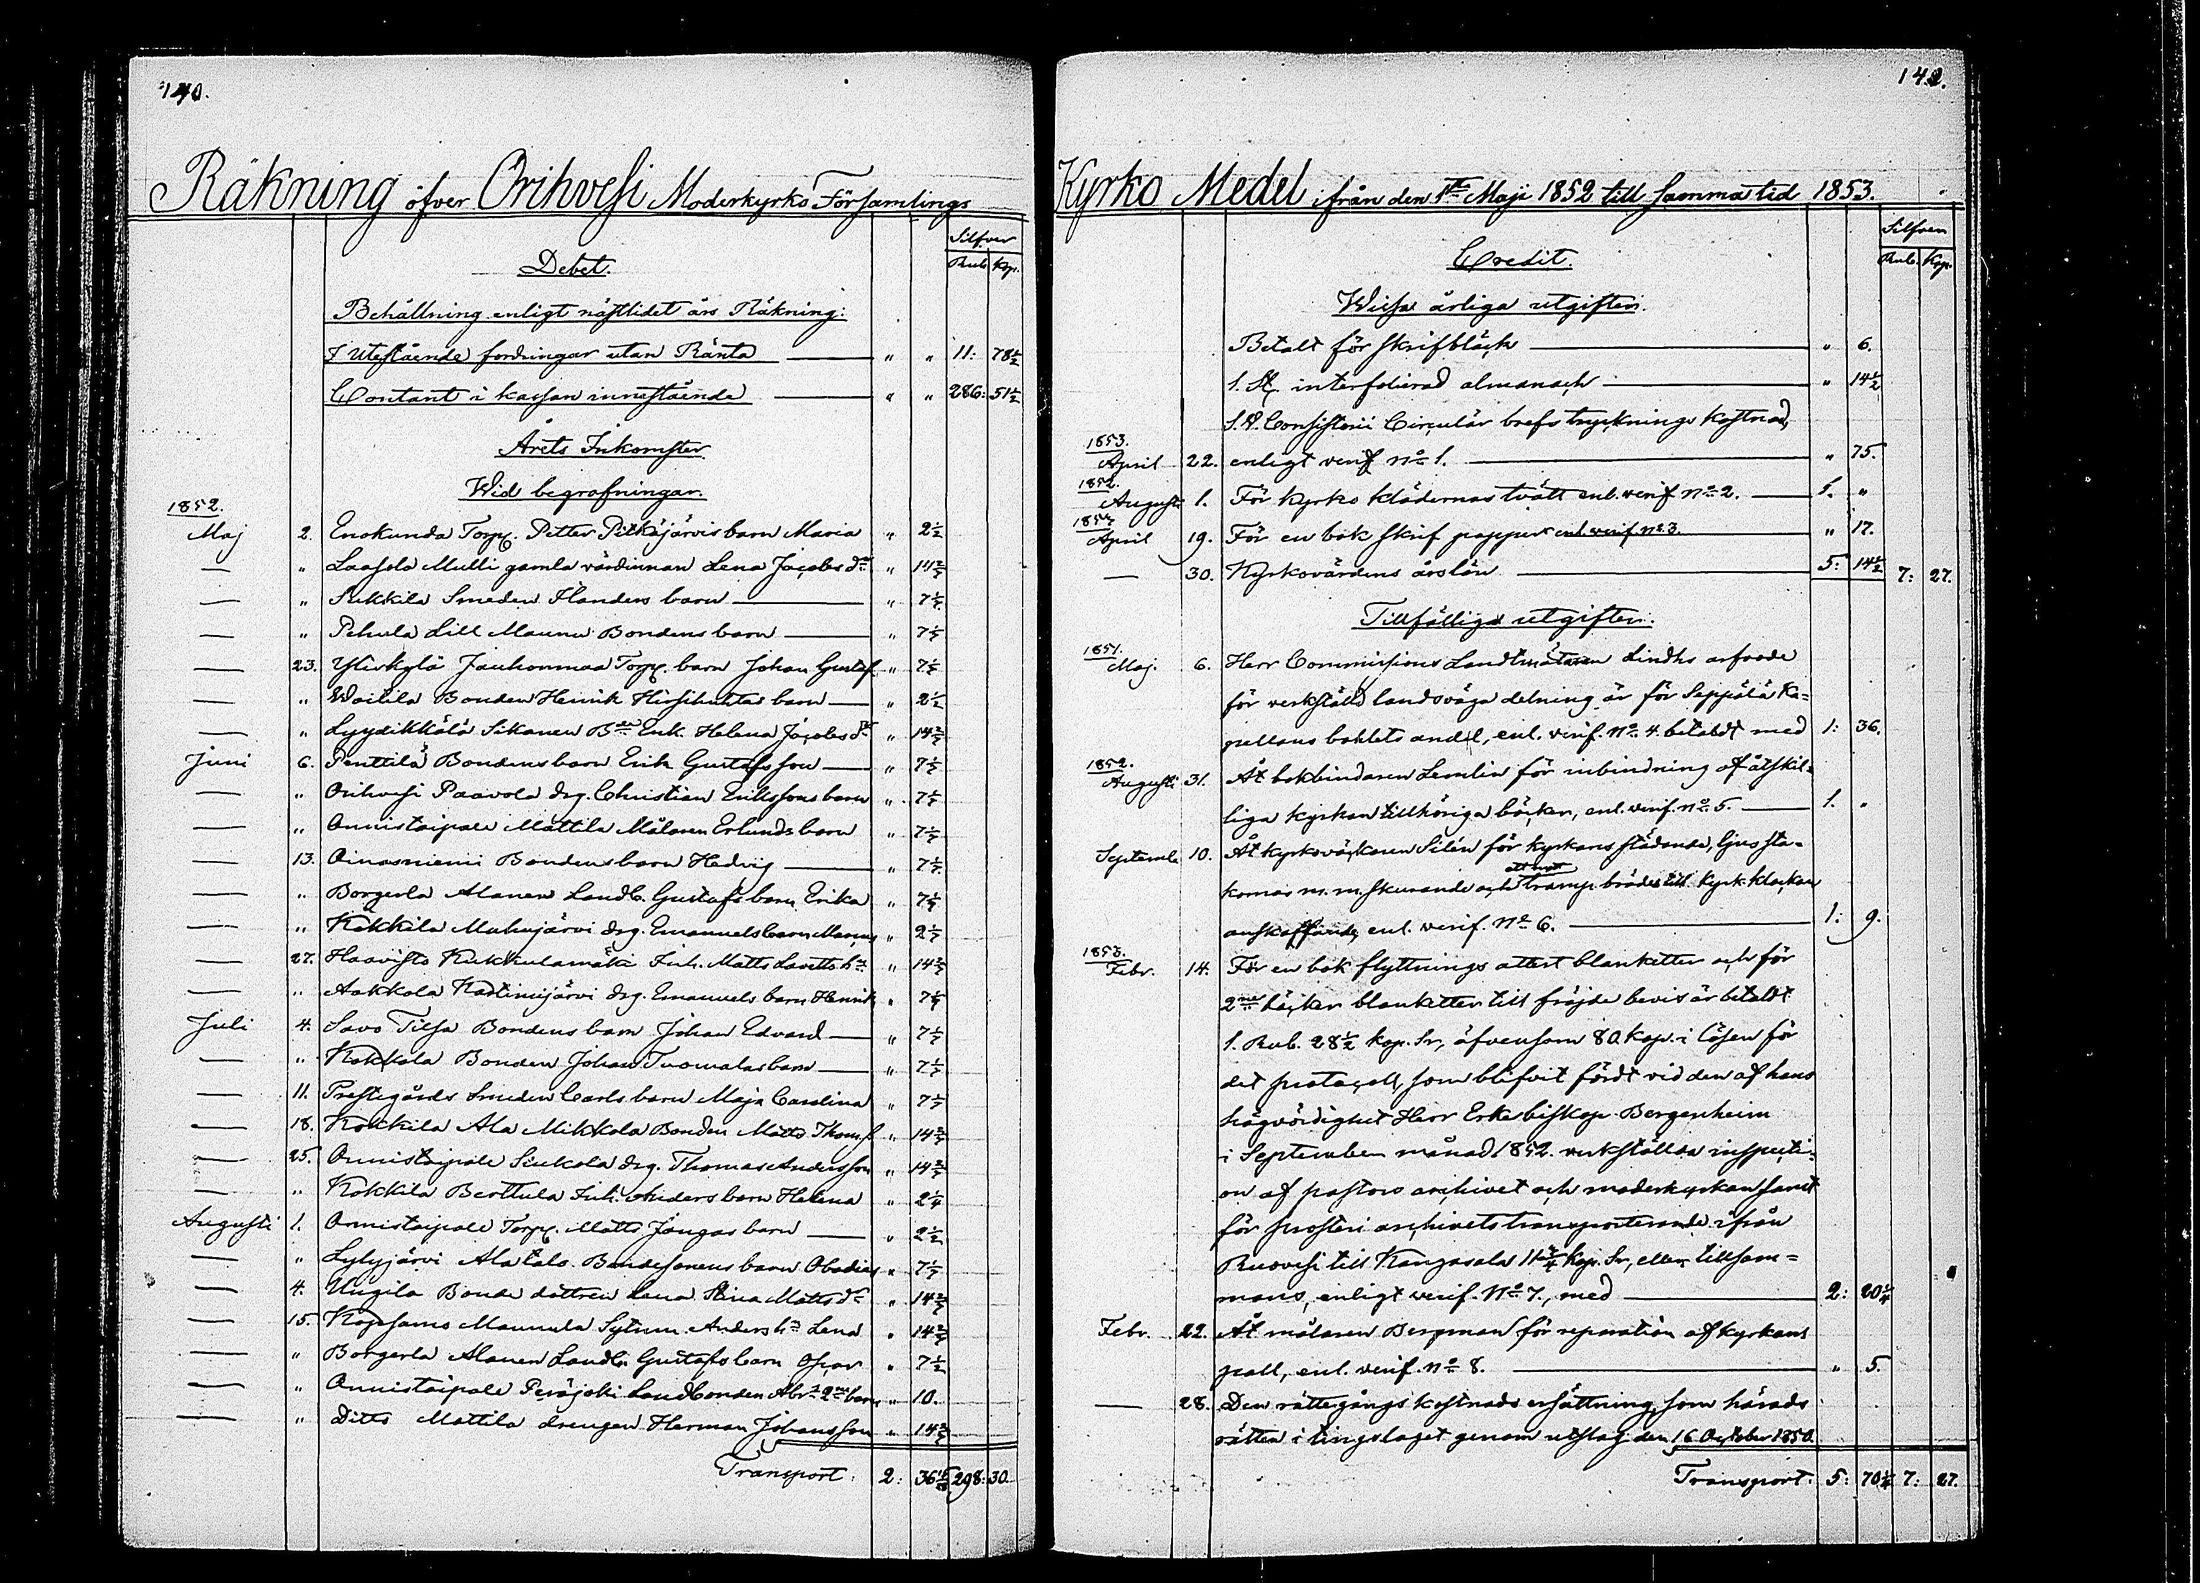 140.
Räkning öfver Orihvesi Moderkyrko Församlings
Silfver
Rub. Kop.
Debet.
Behållning enligt nästlidet års Räkning:
I Utestående fordringar utan Ränta — " " 11: 78½
Contant i kassan innestående — " " 286: 51½
Årets Inkomster
Wid begrafningar.
1852.
Maj 2. Enokunda Torp. Petter Pitkäjärvis barn Maria " 2½
— " Laasola Mulli gamla värdinnan Lena Jacobs dr " 14 2/7
— " Sukkila Smeden Flanders barn — " 7 1/7
— " Pehula Lill Maunu Bondens barn — " 7 1/7
— 23. Ylikylä Jauhonmaa Torp. barn Johan Gustaf " 7 1/7
— " Woitila Bonden Henrik Hirsihuhtas barn — " 2½
— " Lyydikkälä Sikanen Bdes Enk. Helena Jacobs dr " 14 2/7
Juni 6. Penttilä Bondens barn Erik Gustafsson — " 7 1/7
— " Orihvesi Paavola drg. Christian Erikssons barn " 7 1/7
— " Onnistaipale Mattila Målaren Erlunds barn " 7 1/7
— 13. Oinasniemi Bondens barn Hedvig — " 7 1/7
— " Borgerla Alanen Landb. Gustafs barn Erika " 7 1/7
— " Kokkila Muhujärvi drg. Emanuels barn " 2 1/7
— 27. Haavisto Kukkulamäki Inh. Matts h. " 14 2/7
— " Aakkola drg. Emanuels barn Henrik " 7 1/7
Juli 4. Savo Tilsa Bondens barn Johan Edvard — " 7 1/7
— " Kokkola Bonden Johan Tuomalas barn — " 7 1/7
— 11. Prestegårds Smeden Carls barn Maja Carolina " 7 1/7
— 18. Kokkila Ala Mikkola Bonden Matts Thoms. " 14 2/7
— 25. Onnistaipale Siukola drg. Thomas Andersson " 14 2/7
— " Kokkila Berttula Inh. Anders barn Helena " 2 1/4
Augusti 1. Onnistaipale Torp. Matts Jongas barn — " 2½
— " Lylyjärvi Alatalo Bondesonens barn Obadias " 7 1/7
— 4. Uugila Bonde dottren Lena Stina Matts dr " 14 2/7
— 15. Kopsamo Maunula Sytnin. Anders h. Lena " 14 2/7
— " Borgerla Alanen Landb. Gustafs barn Oscar " 7½
— " Onnistaipale Peräjoki Landbonden Abr. 2ne barn " 10.
— " Ditto Mattila drengen Herman Johansson " 14 2/7
Transport. 2: 36 298: 30.
142.
Kyrko Medel ifrån den 1sta Maji 1852 till samma tid 1853.
Silfver
Rub. Kop.
Credit.
Wissa årliga utgifter.
Betalt för skrifbläck — " 6.
1. St. interfolierad almanach — " 14½
S. V. Consistorii Circulär brefs trycknings kostnad,
1853.
April 22. enligt verif. No 1. — " 75.
1852.
Augusti 1. För kyrko klädernas tvätt enl. verif. No 2. — 1. "
1853
April 19. För en bok skrif papper enl. verif. No 3. " 17.
— 30. Kyrkovärdens årslön — 5: 14½ 7: 27.
Tillfälliga utgifter.
1851.
Maj. 6. Herr Commissions Landtmätaren Lindhs arfvode
för verkställd landsväga delning är för Seppälä Ka-
pellans bohlets andel, enl. verif. No 4 betaldt med 1: 36.
1852.
Augusti 31. Åt bokbindaren Lemlin för inbindning af åtskil-
liga kyrkan tillhöriga böcker, enl. verif. No 5. — 1. "
Septemb. 10. Åt kyrkoväktaren Silén för kyrkans städande, ljussta-
kornas m. m. skurande och tramp bräde till kyrk klockan
anskaffande, enl. verif. No 6. — 1: 9.
1853.
Febr. 14. För en bok flyttnings attest blanketter och för
2ne böcker blanketter till fräjde bevis är betaldt
1. Rub. 28½ kop. Sr, äfvensom 80. kop. i lösen för
det protocoll, som blifvit fördt vid den af hans
högvördighet Herr Erkebiskop Bergenheim
i September månad 1852. verkställda inspecti-
on af pastors archivet och moderkyrkan samt
för prosteri archivets transporterande ifrån
Ruovesi till Kangasala 11¾ kop. Sr, eller tillsam-
mans, enligt verif. No 7., med — 2: 20¼
Febr. 22. Åt målaren Bergman för reparation af kyrkans
pall, enl. verif. No 8. — " 5.
— 28. Den rättegångs kostnads ersättning, som härads
rätten i tingslaget genom utslag den 16 October 1850.
Transport. 5: 70¼ 7: 27.